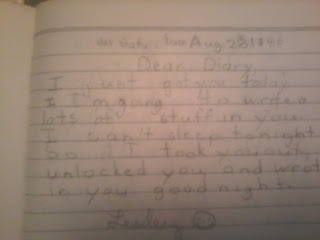 Date: Aug 23 1986
Dear Diary,
I just got you today.
I I'm going to write
lots of stuff in you.
I can't sleep tonight
So I took you out,
unlocked you and wrote
in you good night.